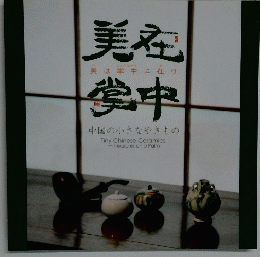 美在
美は掌中に在り
掌中
中国の小さなやきもの
Tiny Chinese Ceramics